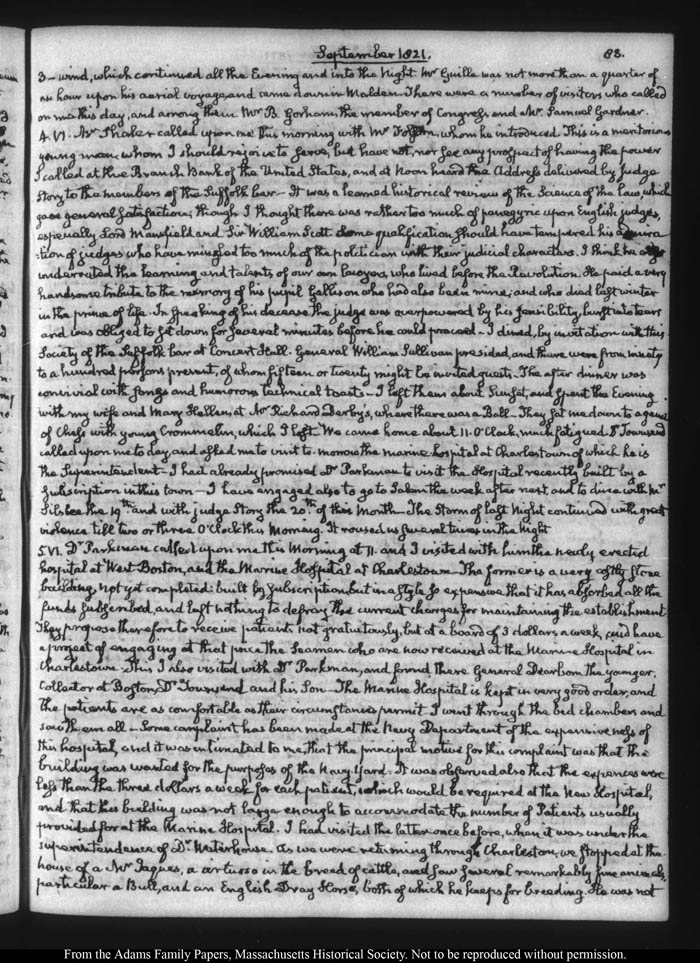 September 1821.
88.
3 – wind, which continued all the Evening and into the Night Mr Guille was not more than a quarter of
an hour upon his aerial voyage, and came down in Malden. There were a number of visitors who called
on me this day, and among them Mr B. Gorham, the member of Congress and Mr Samuel Gardner.
4. VI. Mr Shaler called upon me this morning with Mr Folsom, whom he introduced. This is a meritorious
young man, whom I should rejoice to serve, but have not, nor see any prospect of having the power
I called at the Branch Bank of the United States, and at Noon heard the Address delivered by Judge
Story to the members of the Suffolk bar – It was a learned historical review of the Science of the Law, which
gave general satisfaction; though I thought there was rather too much of panegyric upon English judges,
especially Lord Mansfield and Sir William Scott. Some qualification should have tempered his admira
-tion of judges who have mingled too much of the politician with their judicial characters. I think he also
underrated the learning and talents of our own lawyers, who lived before the Revolution. He paid a very
handsome tribute to the memory of his pupil Gallison who had also been mine; and who died last winter
in the prime of life. In speaking of his decease the judge was overpowered by his sensibility, burst into tears
and was obliged to sit down for several minutes before he could proceed – I dined, by invitation with this
Society of the Suffolk bar at Concert Hall. General William Sullivan presided, and there were from ninety
to a hundred persons present, of whom fifteen or twenty might be invited guests. The after dinner was
convivial with songs and humorous technical toasts – I left them about Sunset, and spent the Evening
with my wife and Mary Hellen, at Mr Richard Derby's, where there was a Ball – They sat me down to a game
of Chess with young Crommelin, which I lost. We came home about 11. O'Clock, much fatigued. Dr Townsend
called upon me to day, and asked me to visit to-morrow the marine hospital at Charlestown of which he is
the Superintendent – I had already promised Dr Parkman to visit the Hospital recently built by a
subscription in this town – I have engaged also to go to Salem the week after next, and to dine with Mr
Silsbee the 19th and with judge Story the 20th of this Month – The Storm of last Night continued with great
violence till two or three O'Clock this Morning. It roused us several times in the Night
5. VI. Dr Parkman called upon me this Morning at 11. and I visited with him the newly erected
hospital at West Boston, and the Marine Hospital at Charlestown – The former is a very costly stone
building, not yet completed: built by subscription, but in a style so expensive that it has absorbed all the
funds subscribed, and left nothing to defray the current charges for maintaining the establishment
They propose therefore to receive patients not gratuitously, but at a board of 3 dollars a week, and have
a project of engaging at that price the Seamen who are now received at the Marine Hospital in
Charlestown. This I also visited with Dr Parkman, and found there General Dearborn the younger.
Collector at Boston, Dr Townsend and his Son – The Marine Hospital is kept in very good order, and
the patients are as comfortable as their circumstances permit I went through the bed chambers and
saw them all – Some complaint has been made at the Navy Department of the expensiveness of
this hospital, and it was intimated to me, that the principal motive for this complaint was that the
building was wanted for the purposes of the Navy Yard. It was observed also that the expences were
less than the three dollars a week for each patient, which would be required at the New Hospital,
and that this building was not large enough to accommodate the number of Patients usually
provided for at the Marine Hospital. I had visited the latter once before, when it was under the
superintendence of Dr Waterhouse. As we were returning through Charlestown, we stopped at the
house of a Mr Jaques, a virtuoso in the breed of cattle, and saw several remarkably fine animals,
particular a Bull, and an English Dray Horse, both of which he keeps for breeding. He was not
From the Adams Family Papers, Massachusetts Historical Society. Not to be reproduced without permission.